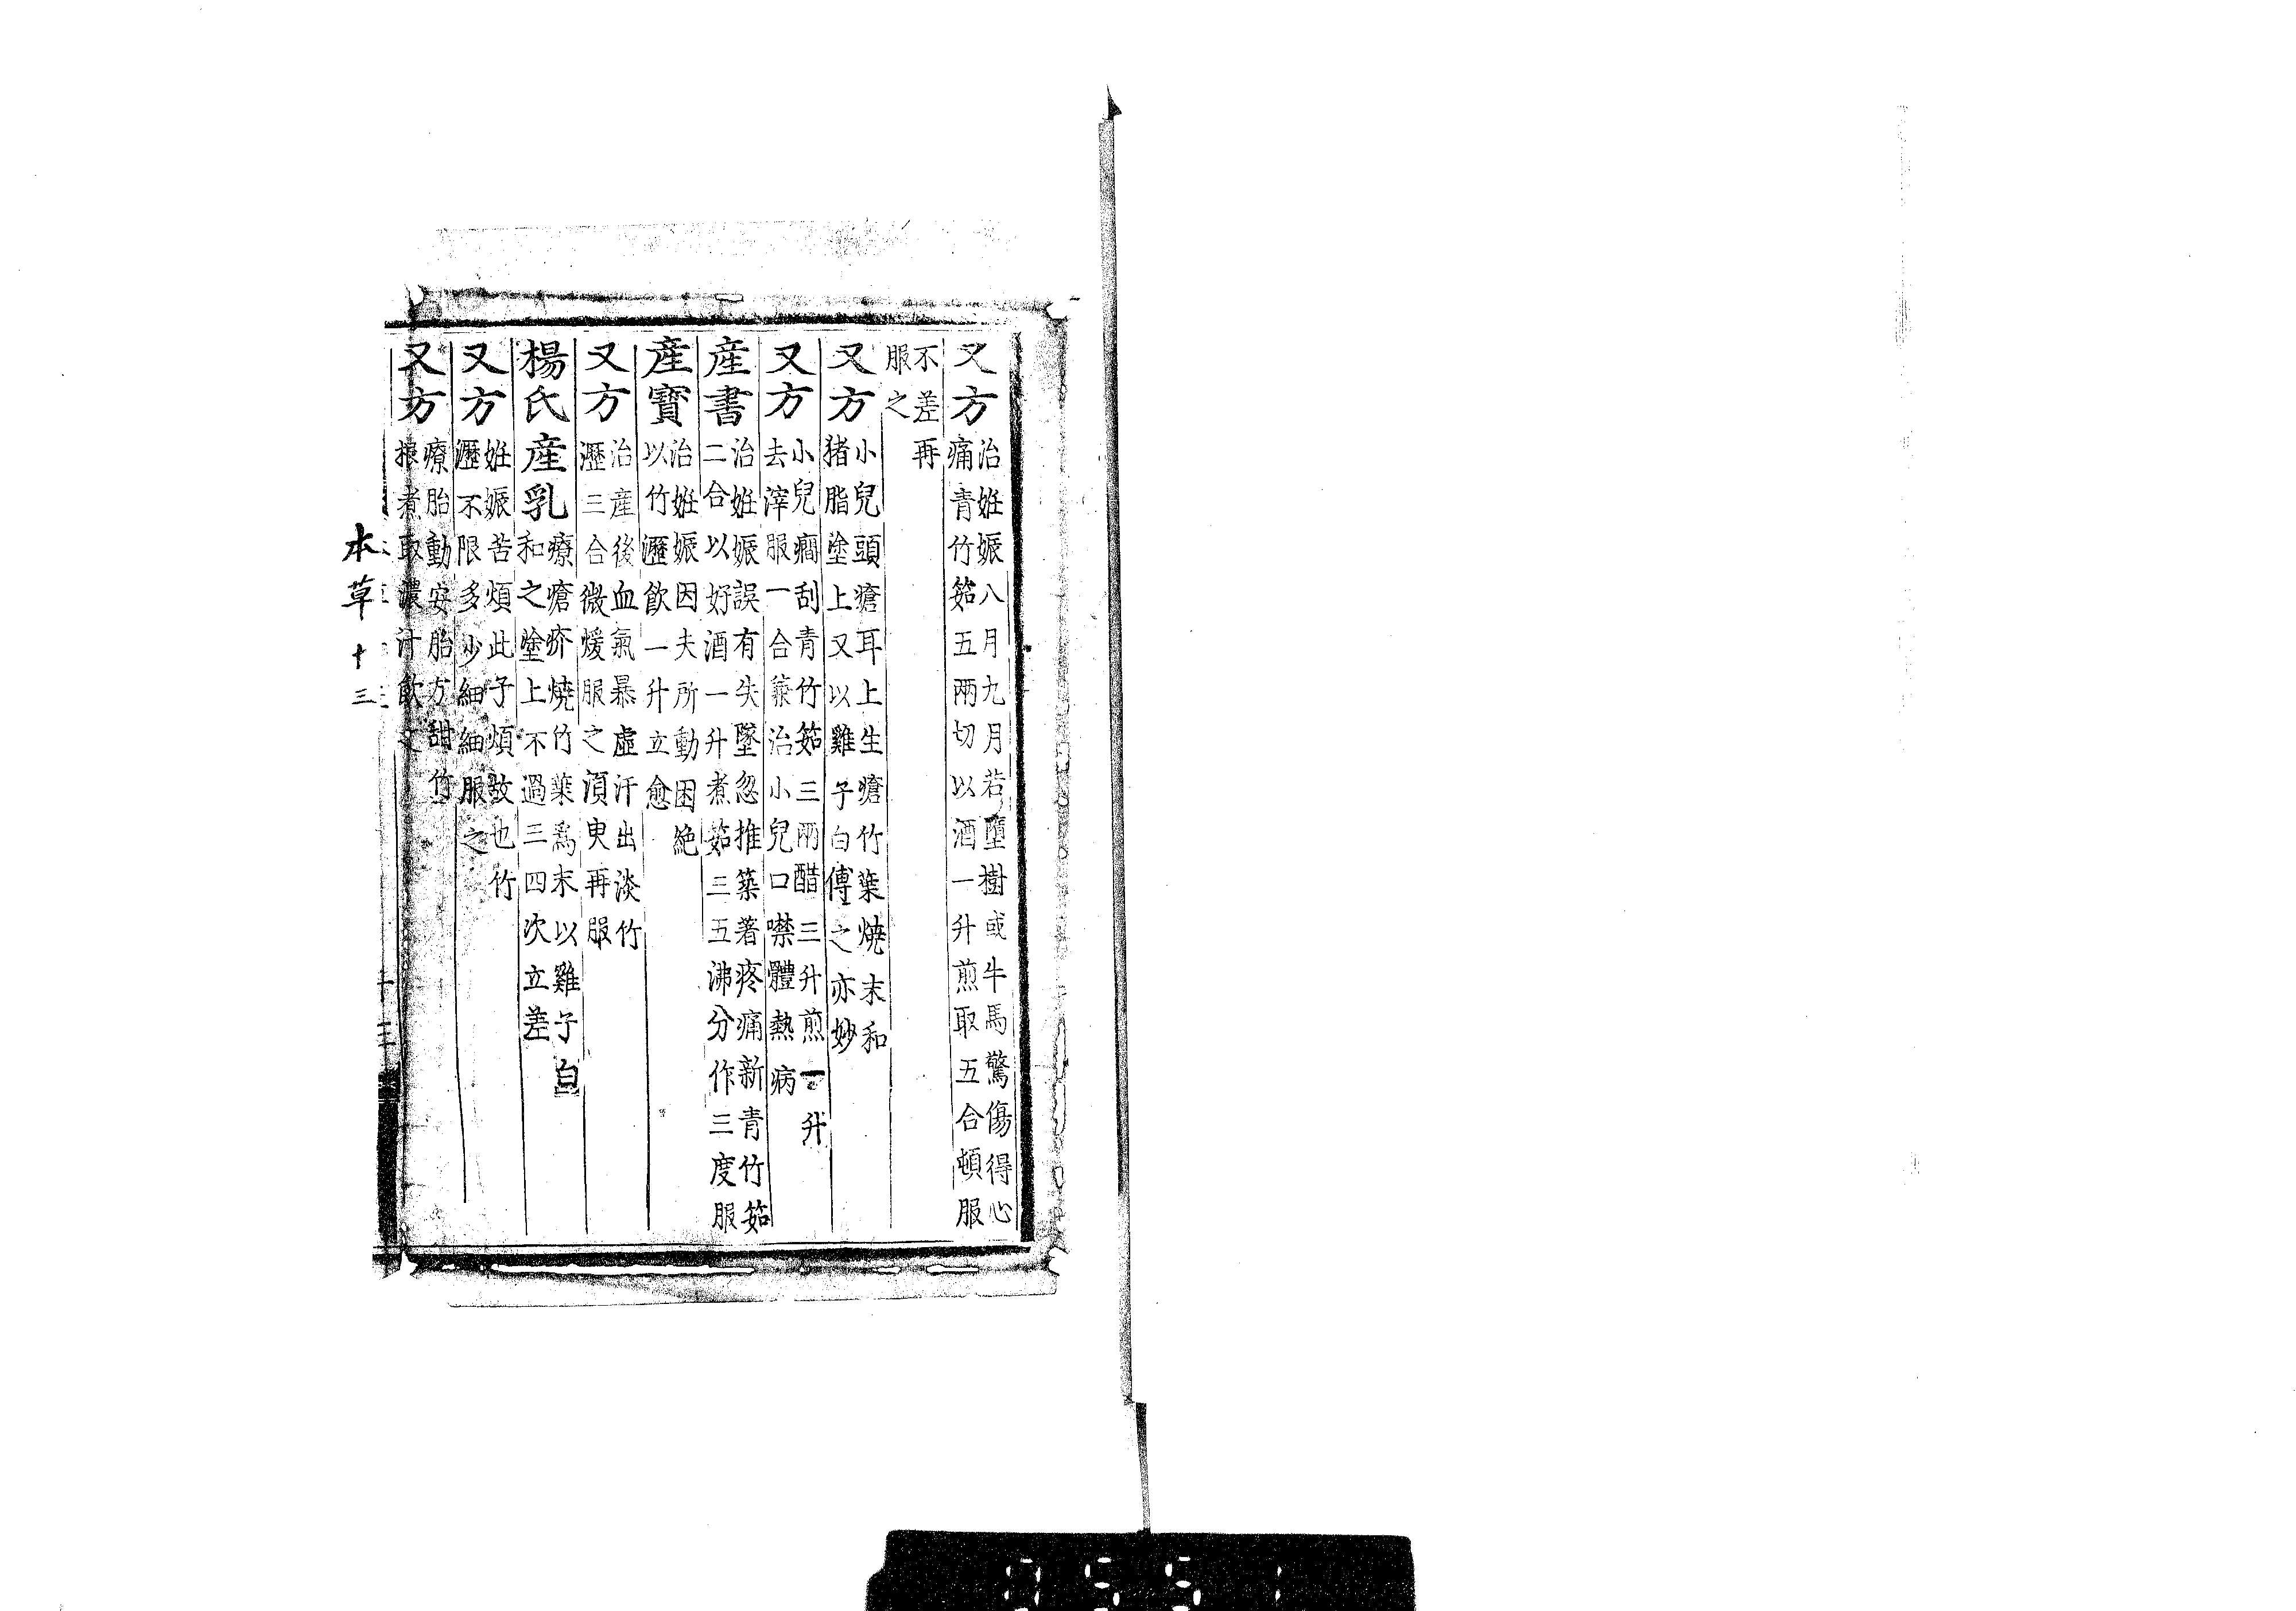 又方治姙娠八月九月若墮樹或牛馬驚傷得心
痛青竹筎五兩切以酒一升煎取五合頓服
不差再
服之
又方小兒頭瘡耳上生瘡竹葉燒末和
猪脂塗上又以雞子白傅之亦妙
又方小兒癇刮青竹筎三兩醋三升煎一升
去滓服一合兼治小兒口噤體熱病
産書治姙娠誤有失墜忽推築著疼痛新青竹筎
二合以好酒一升煮筎三五沸分作三度服
産寳治姙娠因夫所動困絶
以竹瀝飲一升立愈
又方治産後血氣暴虛汗出淡竹
瀝三合微煖服之湏臾再服
楊氏産乳療瘡疥燒竹葉爲末以雞子白
和之塗上不過三四次立差
又方姙娠苦煩此子煩故也竹
瀝不限多少細細服之
又方療胎動安胎方甜竹
根煮取濃汁飲之
本草十三